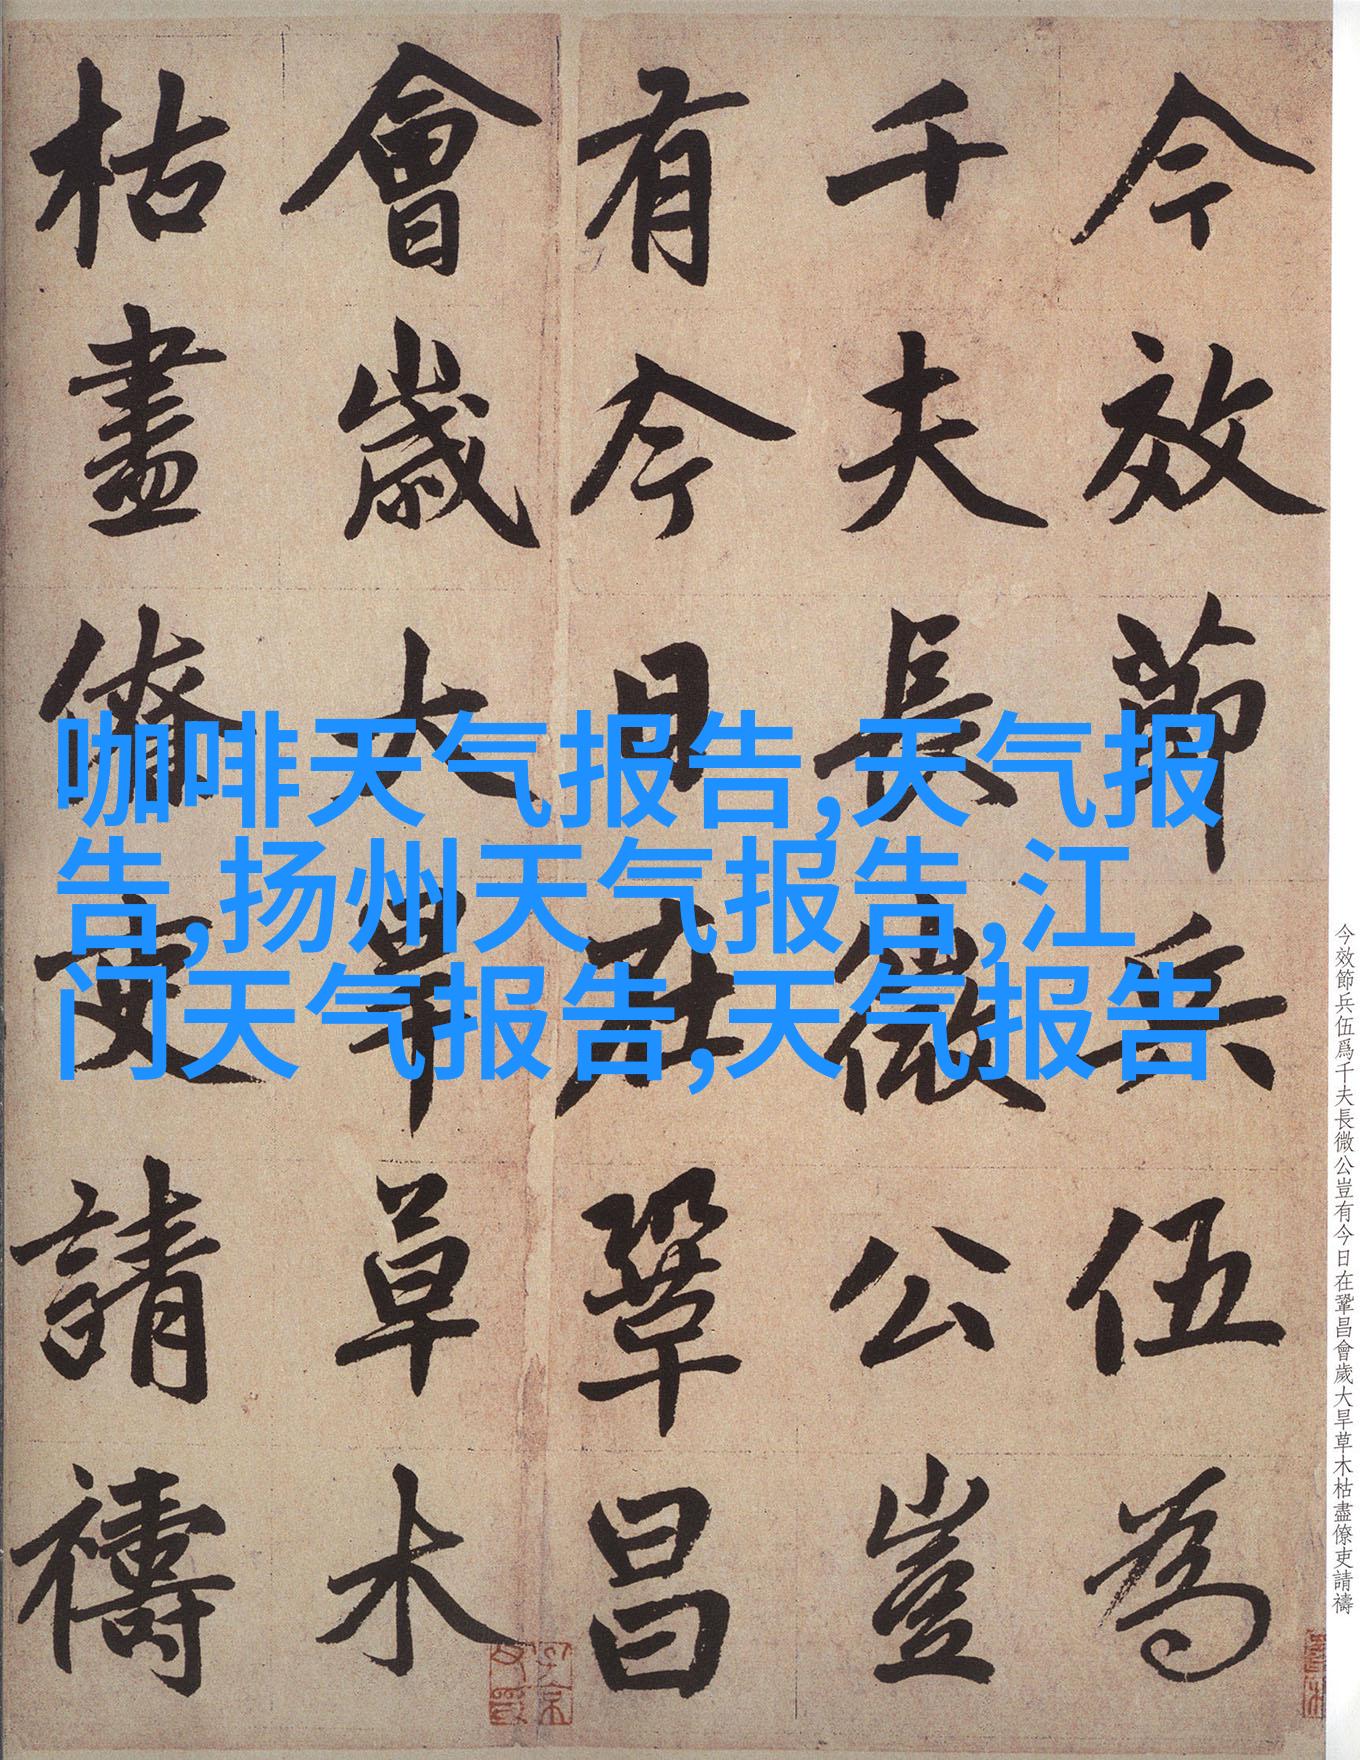 今效節兵伍為
千夫長微公豈
有今日在鞏昌
會歲大旱草木
枯盡僚吏請禱
咖啡天气报告,天气报
告,扬州天气报告,江
门天气报告,天气报告
今效節兵伍爲千夫長微公豈有今日在鞏昌會歲大旱草木枯盡僚吏請禱